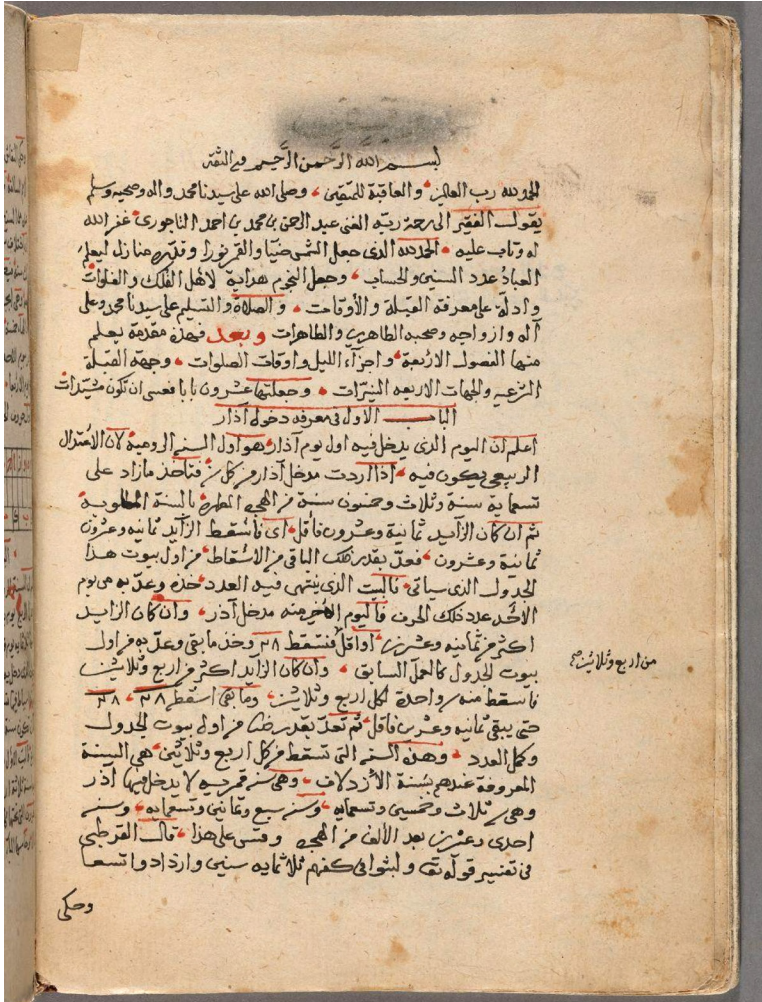 بسم الله الرحمن الرحيم وبه الثقة
الحمد لله رب العالمين والعاقبة للمتقين وصلى الله على سيدنا محمد واله وصحبه وسلم
يقول الفقير الى رحمة ربه الغنى عبد الرحمن بن محمد بن احمد التاجورى غفر الله
له وتاب عليه الحمد لله الذى جعل الشمس ضيا والقمر نورا وقدره منازل ليعلم
العباد عدد السنين والحساب وجعل النجوم هداية لاهل الفلك والفلوات
وادلة على معرفة القبلة والأوقات والصلاة والتسليم على سيدنا محمد وعلى
آله وازواجه وصحبه الطاهرين والطاهرات وبعد فهذه مقدمة يعلم
منها الفصول الاربعة واجزآء الليل واوقات الصلوات وجهة القبلة
الشرعيه والجهات الاربعه النيرات وجعلتها عشرون بابا فعسى ان تكون
الباب الاول فى معرفة دخول آذار
اعلم ان اليوم الذى يدخل فيه اول يوم آذار هو اول السنه الروميه لان الاعتدال
الربيعى يكون فيه اذا اردت مدخل آذار من كل سنه فتاخذ مازاد على
تسعماية سنة وثلاث وخمسون سنة من الهجره المطهره بالسنة المطلوبة
ثم ان كان الزايد ثمانية وعشرون فأقل اى فأسقط الزايد ثمانيه وعشرون
ثمانية وعشرون فعد بقدر ذلك الباقى من الاسقاط من اول بيوت هذا
الجدول الذى سياتى فالبيت الذى ينتهى فيه العدد خذه وعد به من يوم
الأحد عدد ذلك الحرف فاليوم الاخر منه مدخل آذر وان كان الزايد
اكثر من ثمانيه وعشرين اواقل فتسقط ٢٨ وخذ ما بقى وعد به من اول
بيوت الجدول كالعمل السابق وان كان الزايد اكثر من اربع وثلاثين
من اربع وثلاثين صح
فاسقط منه واحدة لكل اربع وثلاثين وما بقى اسقط ٢٨ ٢٨
حتى يبقى ثمانيه وعشرين فأقل ثم تعد بقدر من اول بيوت الجدول
وكمل العدد وهذه السنه التى تسقط من كل اربع وثلاثين هى السنة
المعروفة عندهم بسنة الأزدلاف وهى سنه قمريه لا يدخل فيها آذر
وهى ثلاث وخمسين وتسعمايه وسنه سبع وثمانين وتسعمايه وسنه
احدى وعشرين بعد الألف من الهجره وقس على هذا قال القرطبى
فى تفسير قوله تع ولبثوا فى كهفهم ثلاثمايه سنين وازدادوا تسعا
وحكى